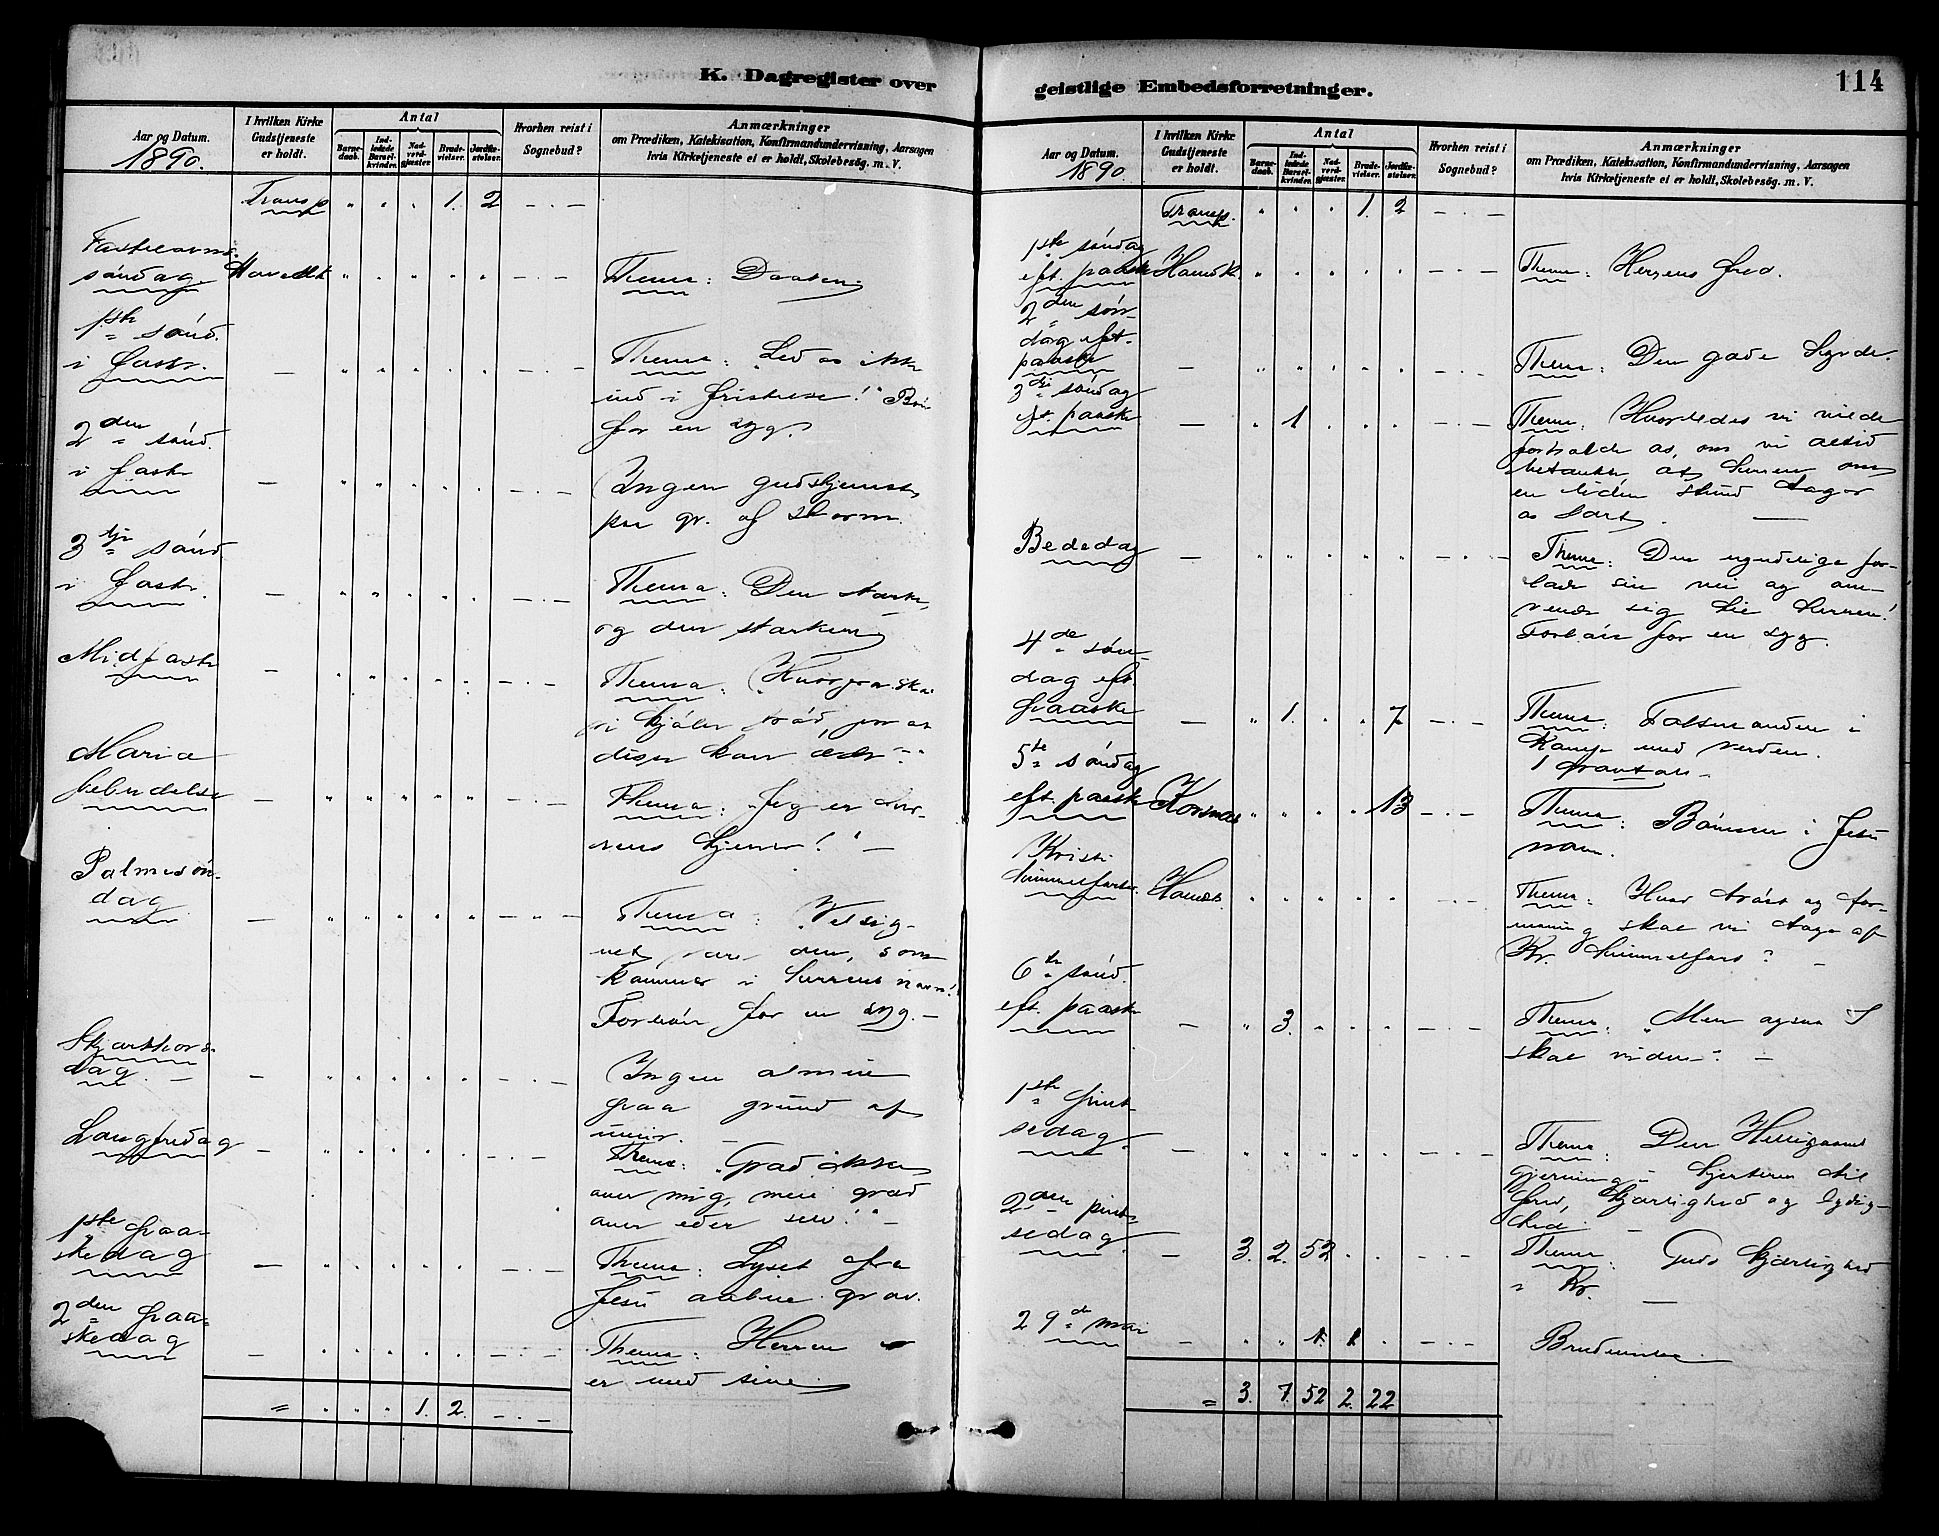 K. Dagregister over
Aar og Datum.
1890.
I hvilken Kirke
Gudstjeneste
er holdt.
Antal
Barne-
daab.
Ind-
ledede
Barsel-
kvinder.
Nad-
verd-
gjæster.
Brude-
vielser.
Jordfæ-
stelser.
Hvorhen reist i
Sognebud?
Anmærkninger
om Prædiken, Katekisation, Konfirmandundervisning, Aarsagen
hvis Kirketjeneste ei er holdt, Skolebesøg. m. V.
Transp. " " " 1. 2 - . -
Fastelavns-
søndag " " " " " - . - Thema: Daaben.
1ste sønd.
i faste. - " " " " " - . - Thema: "Led os ikke
ind i fristelse!" Bøn
for en syg.
2den sønd.
i faste - " " " " " - . - Ingen gudstjeneste
paa gr. af storm.
3tje sønd.
i faste. - " " " " " - . - Thema: Den stærke
og den stærkere
Midfaste - " " " " " - . - Thema: "Hvorfra skal
vi kjøbe brød for at
disse kan æde?"
Maria
bebudelse - " " " " " - . - Thema: "Jeg er Her-
rens tjener!" -
Palmesøn-
dag - " " " " " - . - Thema: "Velsig-
net være den, som
kommer i Herrens navn!"
Forbøn for en syg. -
Skjærthors-
dag. - - " " " " " - . - Ingen
paa grund af
Langfredag - " " " " " - . - Thema: "Græd ikke
over mig, men græd
over eder selv!" -
1ste paa-
skedag - " " " " " - . - Thema: Lyset fra
Jesu aabne grav.
2den paa-
skedag - " " " " " - . - Thema: Herren
er med sine
= " " " 1. 2. - . -
geistlige Embedsforretninger.
114
Aar og Datum.
1890
I hvilken Kirke
Gudstjeneste
er holdt.
Antal
Barne-
daab.
Ind-
ledede
Barsel-
kvinder.
Nad-
verd-
gjæster.
Brude-
vielser.
Jordfæ-
stelser.
Hvorhen reist i
Sognebud?
Anmærkninger
om Prædiken, Katekisation, Konfirmandundervisning, Aarsagen
hvis Kirketjeneste ei er holdt, Skolebesøg. m. V.
Transp. " " " 1. 2 - . -
1ste søndag
eft. paaske " " " " " - . - Thema: Herrens fred.
2den søn-
dag eft.
paaske - " " " " " - . - Thema: Den gode hyrde.
3die søndag
eft. paaske - " 1 " " " - . - Thema: Hvorledes vi vilde
forholde os, om vi altid
betænkte at Herren om
en liden stund tager
os bort. -
Bededag - " " " " " - . - Thema: Den ugudelige for-
lade sin vei og om-
vende sig til Herren!
Forbøn for en syg.
4de søn-
dag eft
paaske - " 1. " " 7 - . - Thema: Talsmanden i
kamp med verden.
1
5te søndag
eft. paaske Korsnes " " " " 13 - . - Thema: Bønnen i Jesu
navn.
Kristi
himmelfartsd. " " " " " - . - Thema: Hvad trøst og for-
maning skal vi tage af
Kr. himmelfart? -
6te sønd.
eft. paaske - " 3. " " " - . - Thema: "Men ogsaa I
skal vidne". -
1ste pint-
sedag. - " " " " " - . - Thema: Den Helligaands
gjerning i hjerterne til
fred, kjærlighed og lydig-
hed. -
2den pint-
sedag - 3. 2. 52 " " - . - Thema: Guds kjærlighed
i Kr. -
29de mai - " " " 1 " - . - Brudevielse
= 3. 7. 52 2. 22